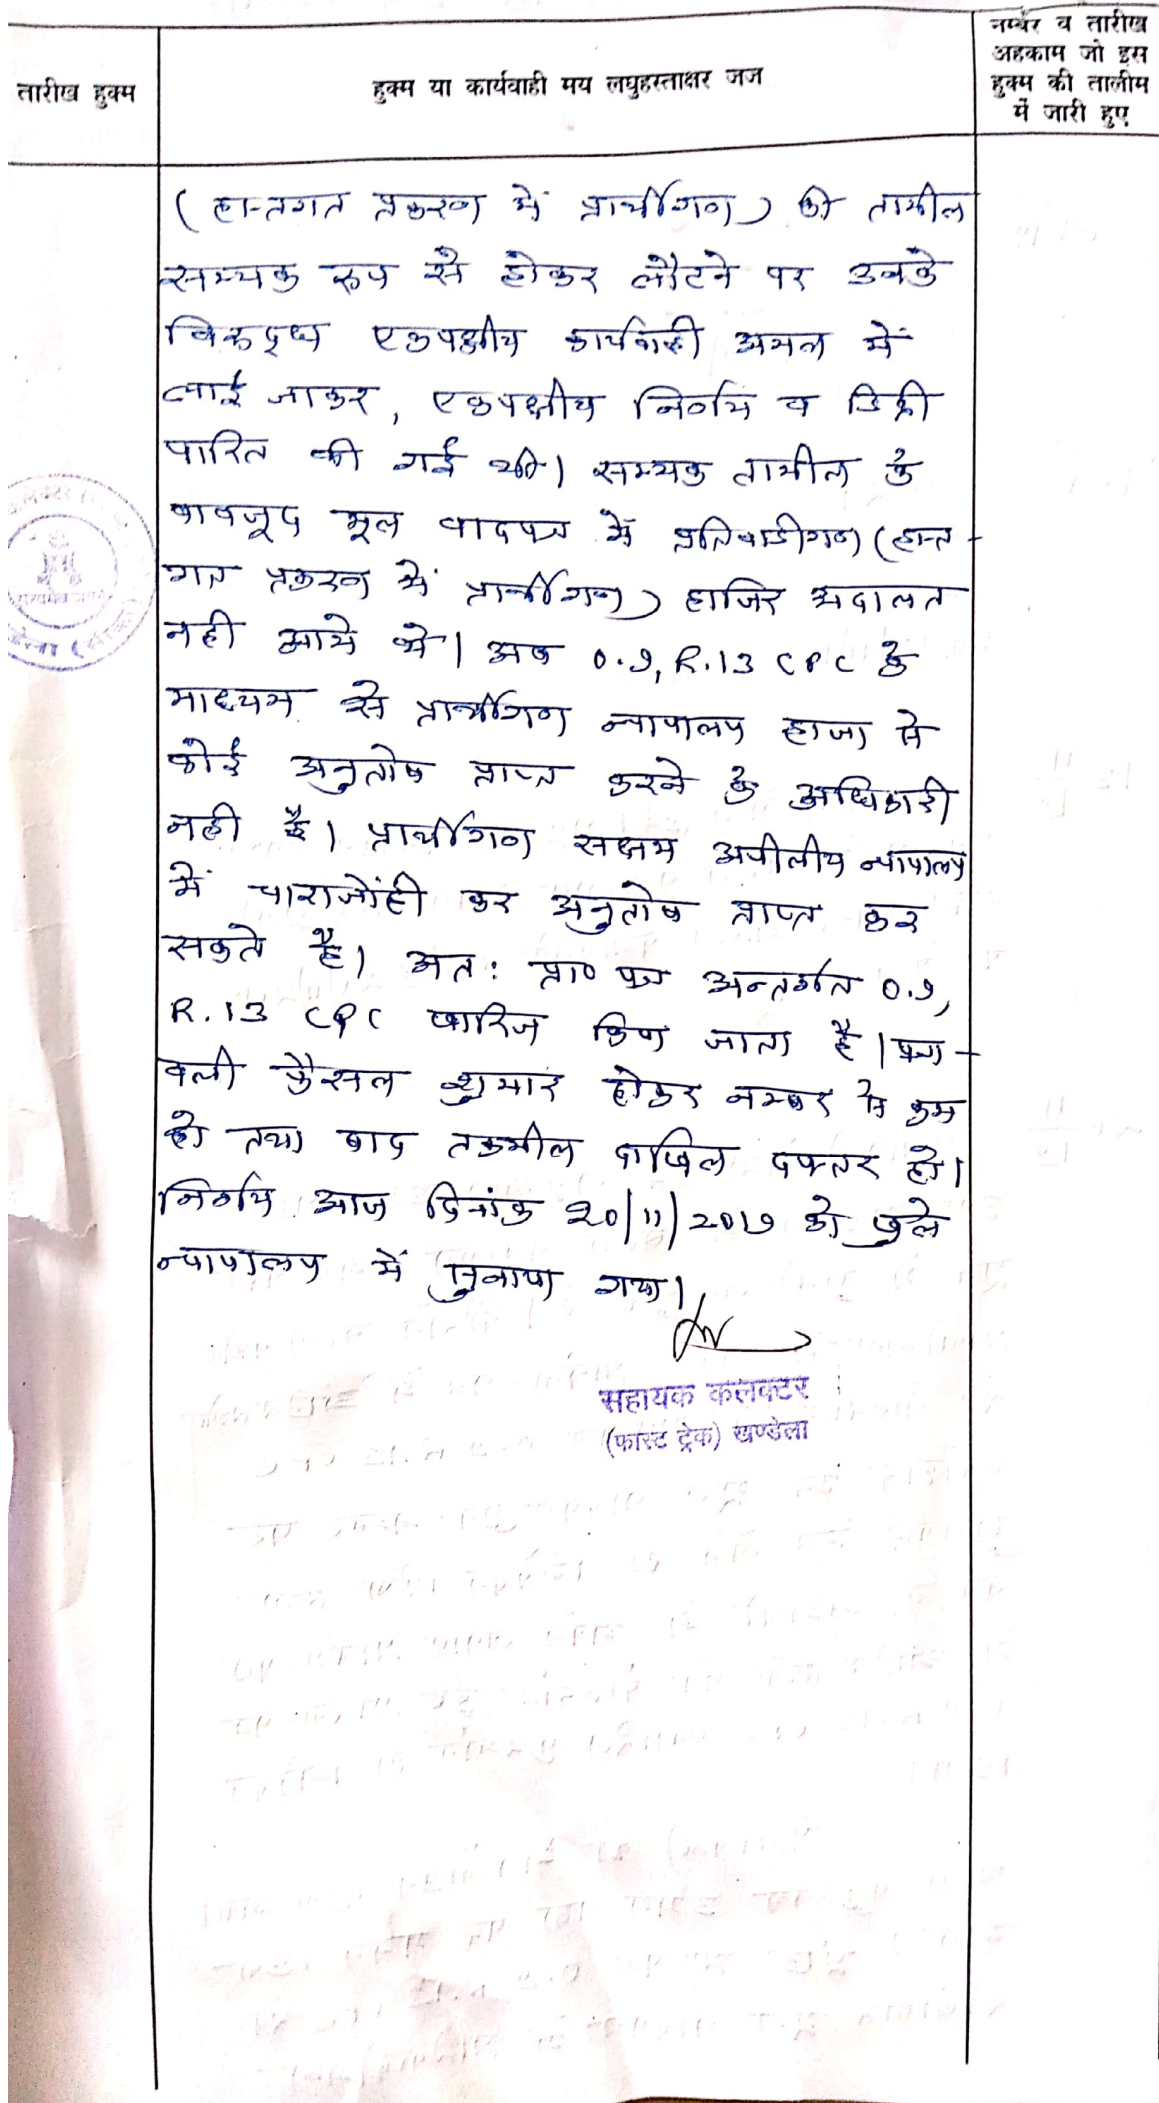 तारीख हुक्म
हुक्म या कार्यवाही मय लघुहस्ताक्षर जज
नम्बर व तारीख
अहकाम जो इस
हुक्म की तालीम
में जारी हुए
(हस्तगत प्रकरण में प्रार्थीगण) की तामील
सम्यक रूप से होकर लौटने पर उनके
विरूद्ध एकपक्षीय कार्यवाही अमल में
लाई जाकर, एकपक्षीय निर्णय व डिक्री
पारित की गई थी। सम्यक तामील के
बावजूद मूल वादपत्र में प्रतिवादीगण (हस्त-
गत प्रकरण में प्रार्थीगण) हाजिर अदालत
नही आये थे। अब O.9, R.13 CPC के
माध्यम से प्रार्थीगण न्यायालय हाजा से
कोई अनुतोष प्राप्त करने के अधिकारी
नही है। प्रार्थीगण सक्षम अपीलीय न्यायालय
में चाराजोही कर अनुतोष प्राप्त कर
सकते है। अत: प्रा० पत्र अन्तर्गत O.9,
R.13 CPC खारिज किया जाता है। पत्रा-
वली फैसल शुमार होकर नम्बर से कम
हो तथा बाद तकमील दाखिल दफ्तर हो।
निर्णय आज दिनांक 20/11/2017 को खुले
न्यायालय में सुनाया गया।
सहायक कलक्टर
(फास्ट ट्रेक) खण्डेला